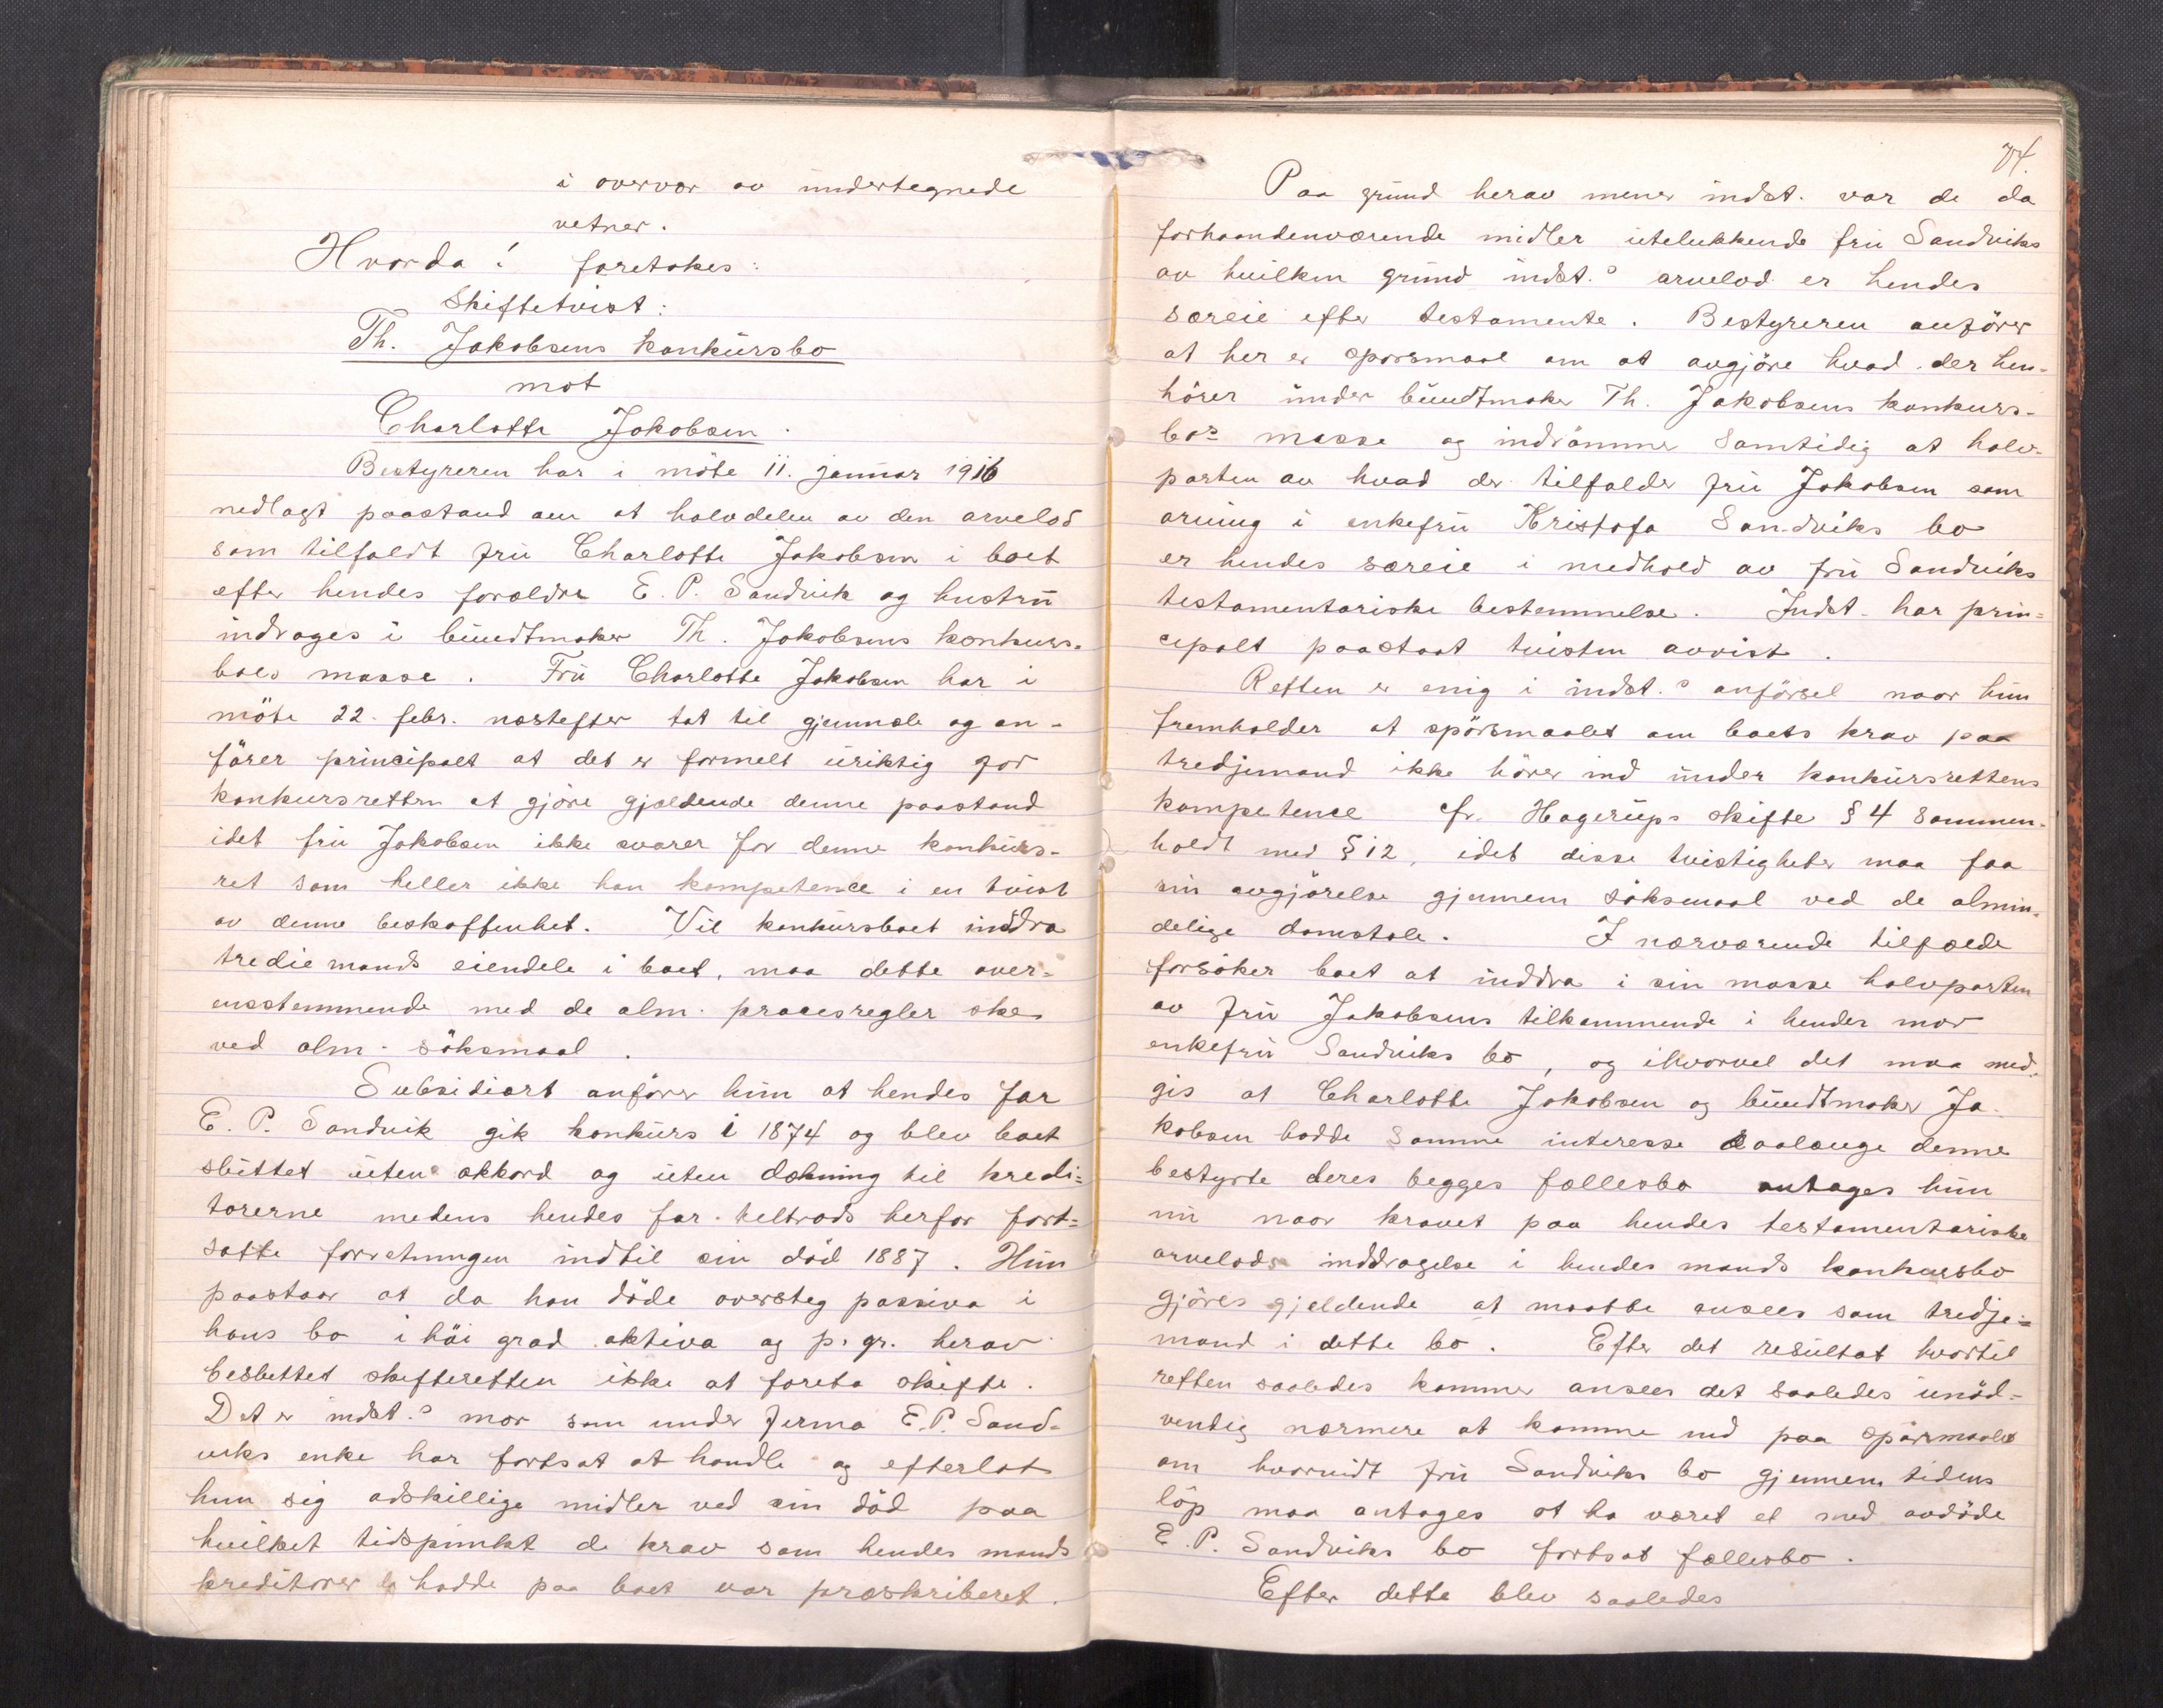 i overvær av undertegnede
vetner.
Hvorda! foretokes:
Skiftetvist:
Th. Jakobsens konkursbo
mot
Charlotte Jakobsen.
Bestyreren har i möte 11. januar 1916
nedlagt paastand om at halvdelen av den arvelod
som tilfaldt fru Charlotte Jakobsen i boet
efter hendes forældre E. P. Sandvik og hustru
indrages i bundtmaker Th. Jakobsens konkurs-
boes masse. Fru Charlotte Jakobsen har i
möte 22. febr. næstefter tat til gjenmæle og an-
förer principalt at det er formelt uriktig for
konkursretten at gjöre gjældende denne paastand
idet fru Jakobsen ikke svarer for denne konkurs-
ret som heller ikke har kompetence i en tvist
av denne beskaffenhet. Vil konkursboet inddra
trediemands eiendele i boet, maa dette over-
ensstemmende med de alm. procesregler ske
ved alm. söksmaal.
Subsidiært anförer hun at hendes far
E. P. Sandvik gik konkurs i 1874 og blev boet
sluttet uten akkord og uten dækning til kredi-
torerne medens hendes far. heltrods herfor fort-
satte forretningen indtil sin död 1887. Hun
paastaar at da han döde oversteg passiva i
hans bo i höi grad aktiva og p. gr. herav
besluttet skifteretten ikke at foreta skifte.
Det er indst.s mor som under firma E. P. Sand-
viks enke har fortsat at handle og efterlot
hun sig adskillige midler ved sin död paa
hvilket tidspunkt de krav som hendes mands
kreditorer hadde paa boet var præskriberet.
74.
Paa grund herav mener indst. var de da
forhaandenværende midler utelukkende fru Sandviks
av hvilken grund indst.s arvelod er hendes
særeie efter testamente. Bestyreren anförer
at her er sporsmaal om at avgjöre hvad der hen-
hörer under bundtmaker Th. Jakobsens konkurs-
bos masse og indrömmer samtidig at halv-
parten av hvad der tilfalder fru Jakobsen som
arving i enkefru Kristofa Sandviks bo
er hendes særeie i medhold av fru Sandviks
testamentariske bestemmelse. Indst. har prin-
cipalt paastaat tvisten avvist.
Retten er enig i indst.s anförsel naar hun
fremholder at spörsmaalet om boets krav paa
tredjemand ikke hörer ind under konkursrettens
kompetence cfr. Hagerups skifte § 4 sammen-
holdt med § 12, idet disse tvistigheter maa faa
sin avgjörelse gjennem söksmaal ved de almin-
delige domstole. I nærværende tilfælde
forsöker boet at inddra i sin masse halvparten
av fru Jakobsens tilkommende i hendes mor
enkefru Sandviks bo, og ihvorvel det maa med-
gis at Charlotte Jakobsen og bundtmaker Ja-
kobsen hadde samme interesse saalænge denne
bestyrte deres begges fællesbo antages hun
nu naar kravet paa hendes testamentariske
arvelods inddragelse i hendes mands konkursbo
gjöres gjeldende at maatte ansees som tredje-
mand i dette bo. Efter det resultat hvortil
retten saaledes kommer ansees det saaledes unöd-
vendig nærmere at komme ind paa spörsmaalet
om hvorvidt fru Sandviks bo gjennem tidens
löp maa antages at ha været et med avdöde
E. P. Sandviks bo fortsat fællesbo.
Efter dette blev saaledes